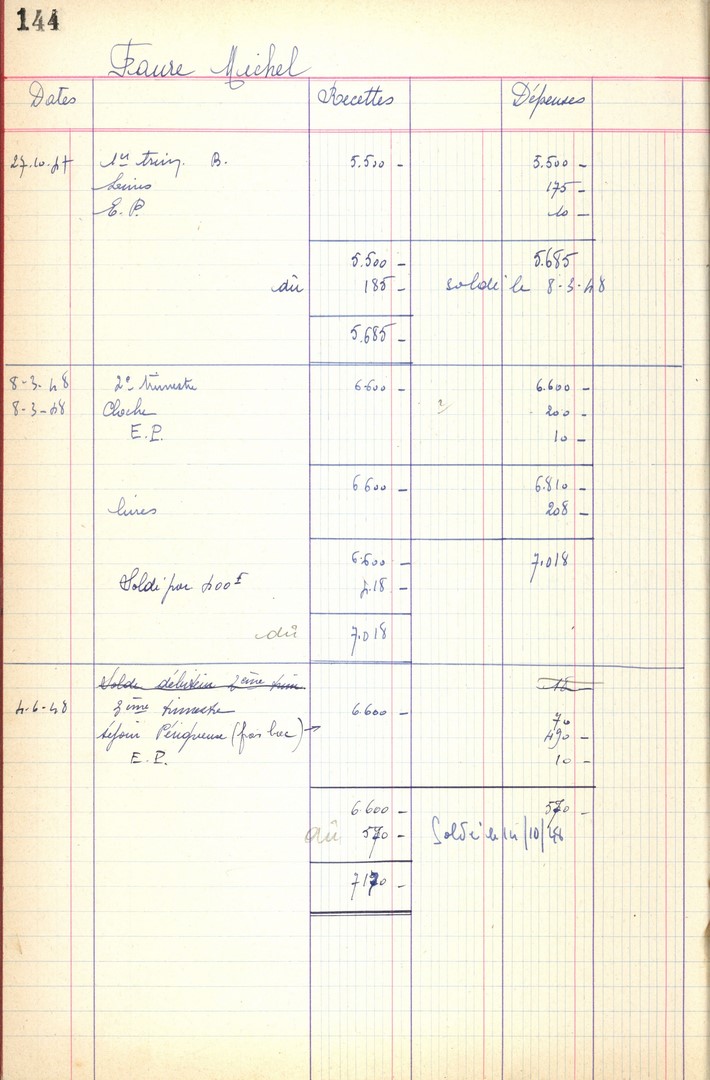 144
Faure Michel
Dates Recettes Dépenses
27.10.47 1er trim. B. 5.500 - 5.500 -
Livres 175 -
E.P. 10 -
5.500 - 5.685
dû 185 - soldé le 8-3-48
5.685 -
8-3-48 2e trimestre 6.600 - 6.600 -
8-3-48 Cloche 200 -
E.P. 10 -
6.600 - 6.810 -
livres 208 -
6.600 - 7.018
Soldé par 400F 418 -
dû 7.018
Solde débiteur 2ème trim. 18
4-6-48 3ème trimestre 6.600 -
séjour Périgueux (pas bac) → 490 -
E.P. 10 -
6.600 - 570 -
dû 570 - Soldé le 14/10/48
7170 -